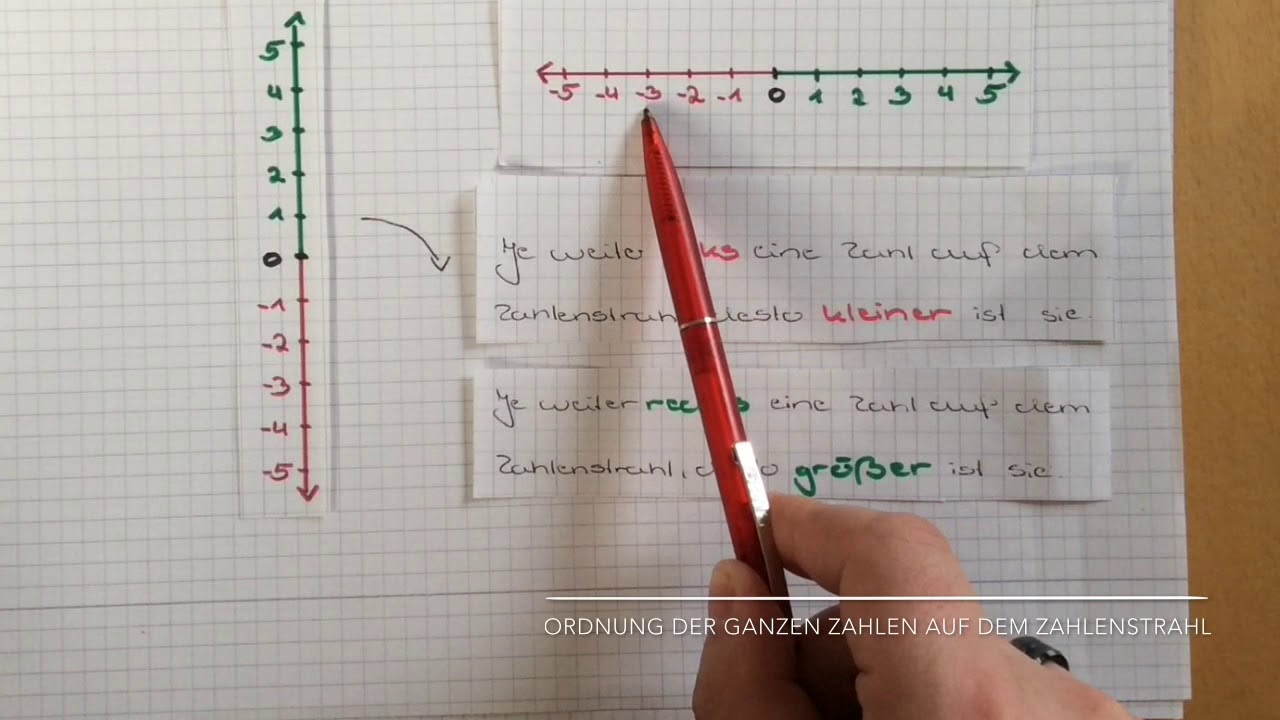 5
4
3
2
1
0
-1
-2
-3
-4
-5
-5 -4 -3 -2 -1 0 1 2 3 4 5
Je weiter ks eine Zahl auf dem
Zahlenstrah desto kleiner ist sie.
Je weiter rec s eine Zahl auf dem
Zahlenstrahl, d o größer ist sie.
ORDNUNG DER GANZEN ZAHLEN AUF DEM ZAHLENSTRAHL